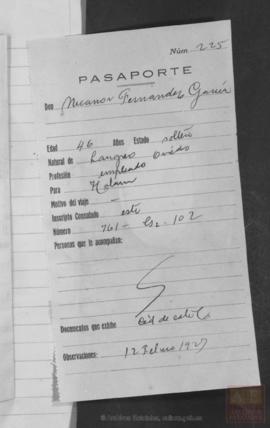 Núm. 225
PASAPORTE
Don Nicanor Fernandez Garcia
Edad 46 Años Estado soltero
Natural de Langreo Oviedo
Profesión empleado
Para
Motivo del viaje –
Inscripto Consulado este
Número 761 - 102
Personas que le acompañan:
Documentos que exhibe
Observaciones: 12 Febrero 1927